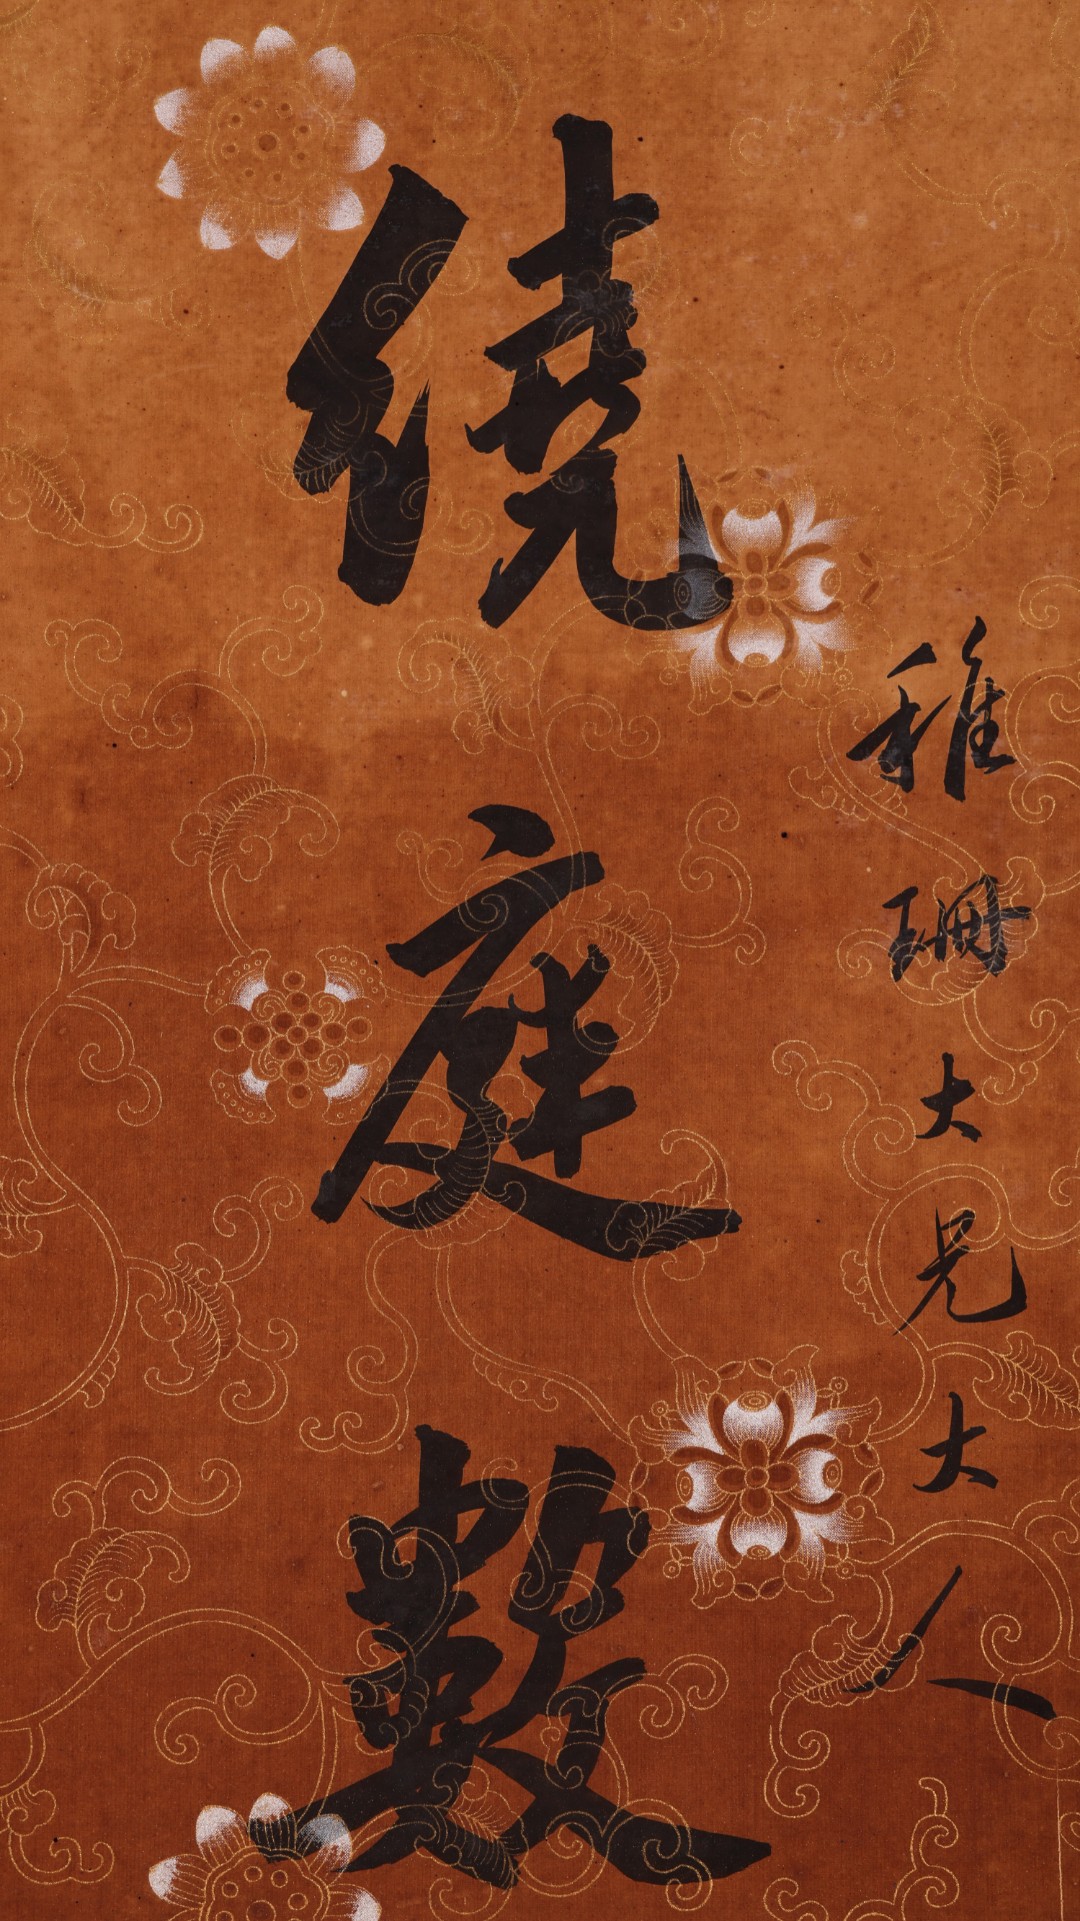 稚珊大兄大人
繞庭數